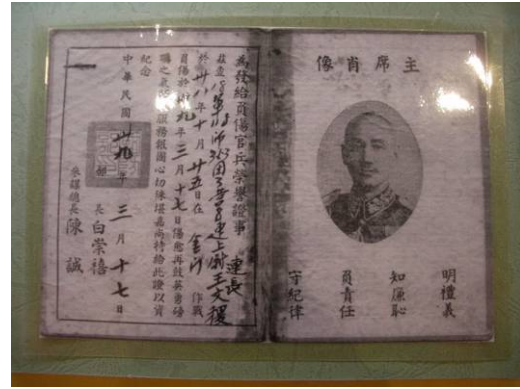 主席肖像
明禮義
知廉恥
負責任
守紀律
為發給負傷官兵榮譽證事
茲查 師 團 連上尉連長王文稷
於卅八年十月廿五日在金門作戰
負傷於卅九年三月十七日傷愈再 英勇
服務報國心切殊堪嘉尚特給此證以資
紀念
中華民國卅九年三月十七日
部長白崇禧
參謀總長陳誠